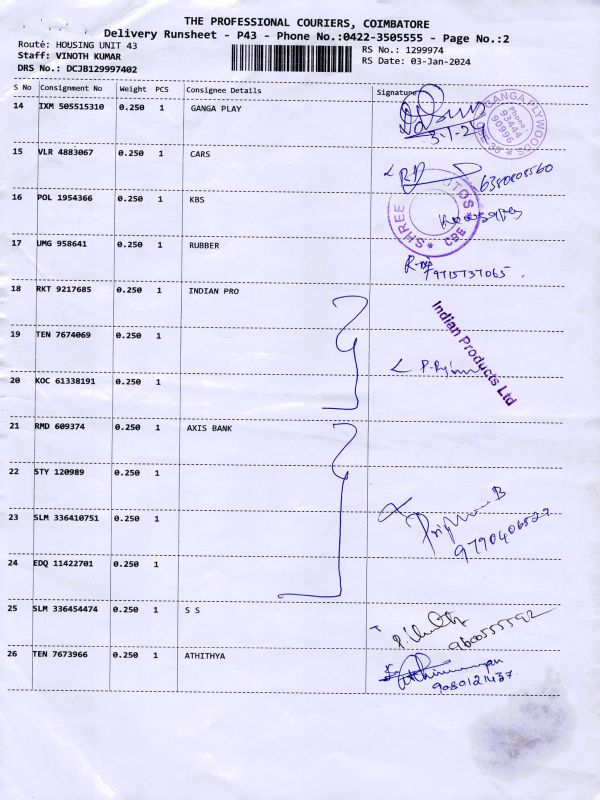 THE PROFESSIONAL COURIERS, COIMBATORE
Delivery Runsheet - P43 - Phone No.:0422-3505555 - Page No.:2
Route: HOUSING UNIT 43
Staff: VINOTH KUMAR
DRS No.: DCJB129997402
RS No.: 1299974
RS Date: 03-Jan-2024
S No Consignment No Weight PCS Consignee Details Signature
14 IXM 505515310 0.250 1 GANGA PLAY
3-1-24
GANGA PLYWOODS
Phone
93444
90996
CBE-35
15 VLR 4883067 0.250 1 CARS
16 POL 1954366 0.250 1 KBS
SHREE
CBE
17 UMG 958641 0.250 1 RUBBER
9715737065
18 RKT 9217685 0.250 1 INDIAN PRO
Indian Products Ltd
19 TEN 7674069 0.250 1
20 KOC 61338191 0.250 1
21 RMD 609374 0.250 1 AXIS BANK
22 STY 120989 0.250 1
23 SLM 336410751 0.250 1
9790406527
24 EDQ 11422701 0.250 1
25 SLM 336454474 0.250 1 S S
9600555592
26 TEN 7673966 0.250 1 ATHITHYA
9080121437